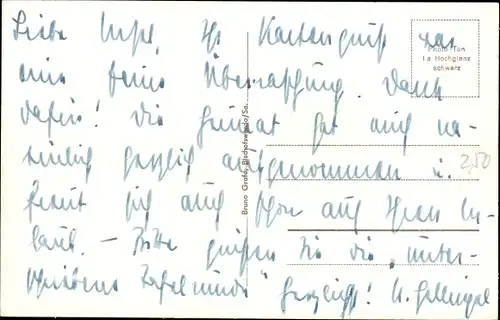 Liebe Ihr Kartengruß war
mir feine Überraschung. Dank
dafür! Die Heimat hat mich na-
türlich herzlich aufgenommen u.
freut sich auch schon auf Ihren Ur-
laub. — Bitte grüßen Sie die „unter-
Tafelrunde" herzlichst!
Photo Ton
I a Hochglanz
schwarz
Bruno Grafe, Bischofswerda/Sa.
2,50